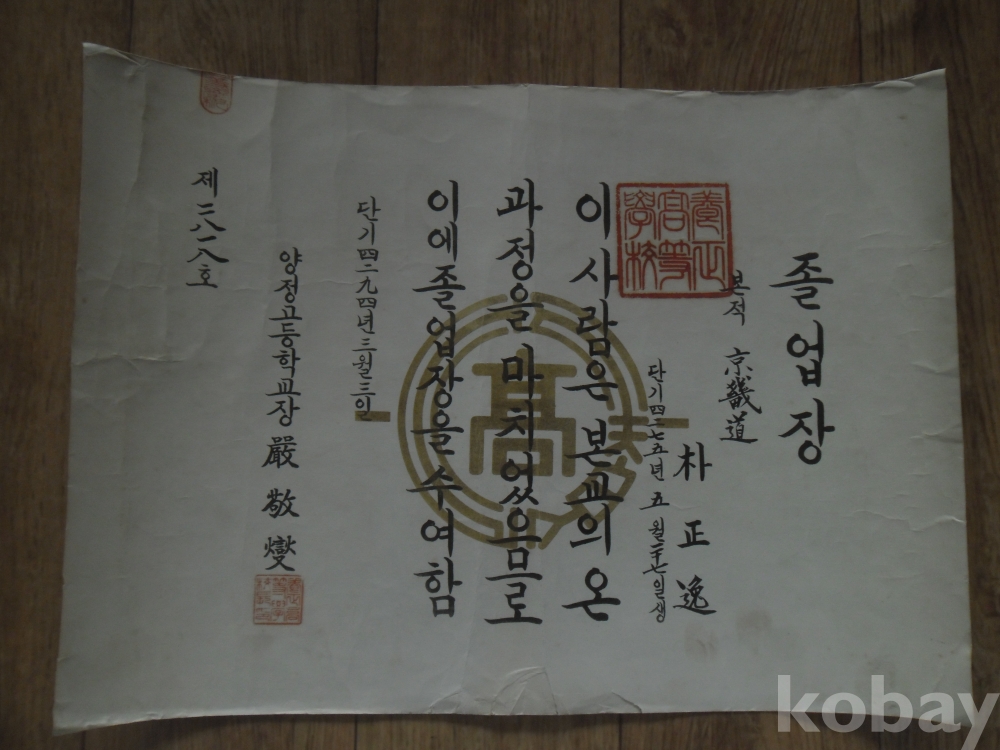 졸업장
본적 京畿道
朴正逸
단기四二七五년 五월二十七일생
이사람은본교의온
과정을마치었음므로
이에졸업장을수여함
단기四二九四년三월三일
양정고등학교장 嚴敬燮
제二八一八호
養正高等學校
高
kobay